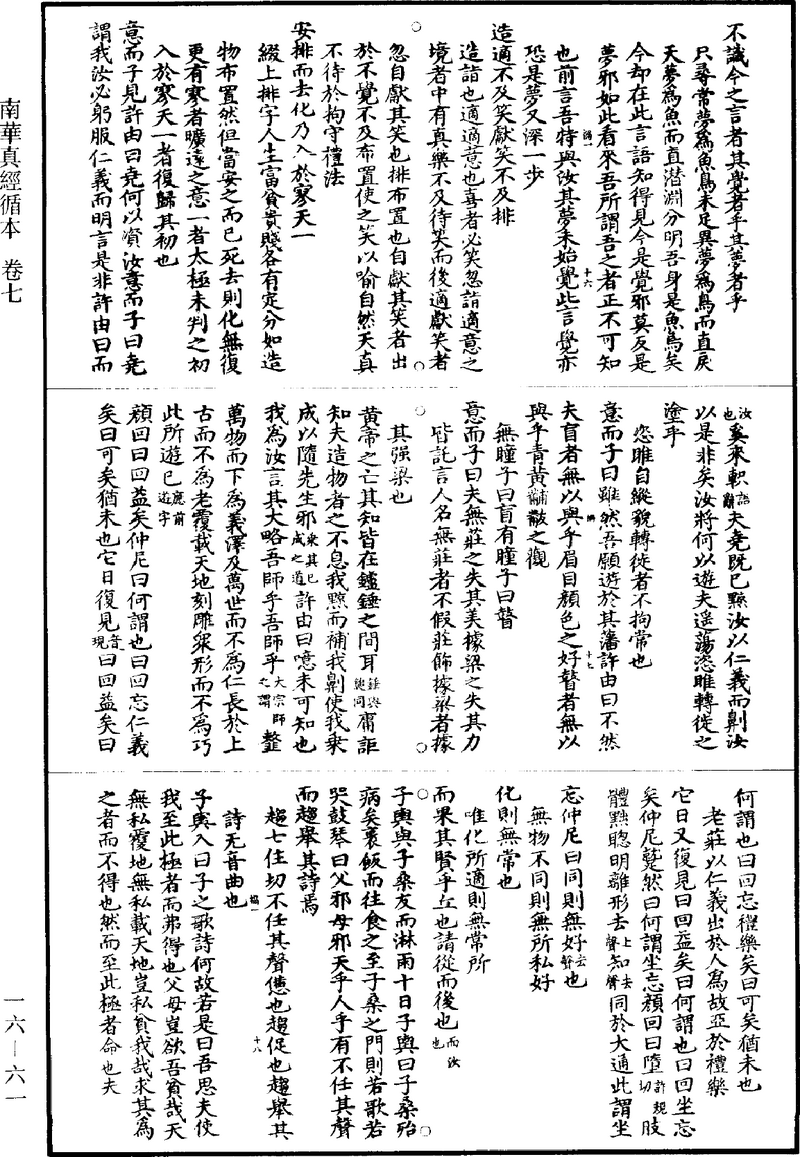 南華真經循本 卷七
一六—六一
不識今之言者其覺者乎其夢者乎
只尋常夢為魚鳥未足異夢為鳥而直戾
天夢為魚而直潜淵分明吾身是魚鳥矣
今却在此言語知得見今是覺邪莫反是
夢邪如此看來吾所謂吾之者正不可知
也前言吾特與汝其夢未始覺此言覺亦
恐是夢又深一步
造適不及笑獻笑不及排
造詣也適適意也喜者必笑忽詣適意之
境者中有真樂不及待笑而後適獻笑者
忽自獻其笑也排布置也自獻其笑者出
於不覺不及布置使之笑以喻自然天真
不待於拘守禮法
安排而去化乃入於寥天一
綴上排字人生富貧貴賤各有定分如造
物布置然但當安之而已死去則化無復
更有寥者曠遠之意一者太極未判之初
入於寥天一者復歸其初也
意而子見許由曰堯何以資汝意而子曰堯
謂我汝必躬服仁義而明言是非許由曰而
汝也奚來軹語辭夫堯既已黥汝以仁義而劓汝
以是非矣汝將何以遊夫遥蕩恣睢轉徙之
塗乎
恣睢自縱貌轉徙者不拘常也
意而子曰雖然吾願遊於其藩許由曰不然
夫盲者無以與乎眉目顏色之好瞽者無以
與乎青黄黼黻之觀
無瞳子曰盲有瞳子曰瞽
意而子曰夫無莊之失其美據梁之失其力
皆託言人名無莊者不假莊飾據梁者據
其强梁也
黄帝之亡其知皆在鑪錘之間耳錘與鎚同庸詎
知夫造物者之不息我黥而補我劓使我乗
成以隨先生邪乘其已成之道許由曰噫未可知也
我為汝言其大略吾師乎吾師乎大宗師之謂䪠
萬物而下為義澤及萬世而不為仁長於上
古而不為老覆載天地刻雕衆形而不為巧
此所遊已應前遊字
顏回曰回益矣仲尼曰何謂也曰回忘仁義
矣曰可矣猶未也它日復見音現曰回益矣曰
何謂也曰回忘禮樂矣曰可矣猶未也
老莊以仁義出於人為故亞於禮樂
它日又復見曰回益矣曰何謂也曰回坐忘
矣仲尼蹵然曰何謂坐忘顏回曰墮許規切肢
體黜聰明離形去上聲知去聲同於大通此謂坐
忘仲尼曰同則無好去聲也
無物不同則無所私好
化則無常也
唯化所適則無常所
而果其賢乎丘也請從而後也而汝也
子輿與子桑友而淋雨十日子輿曰子桑殆
病矣裹飯而往食之至子桑之門則若歌若
哭鼓琴曰父邪母邪天乎人乎有不任其聲
而趨舉其詩焉
趨七住切不任其聲憊也趨促也趨舉其
詩无音曲也
子輿入曰子之歌詩何故若是曰吾思夫使
我至此極者而弗得也父母豈欲吾貧哉天
無私覆地無私載天地豈私貧我哉求其為
之者而不得也然而至此極者命也夫